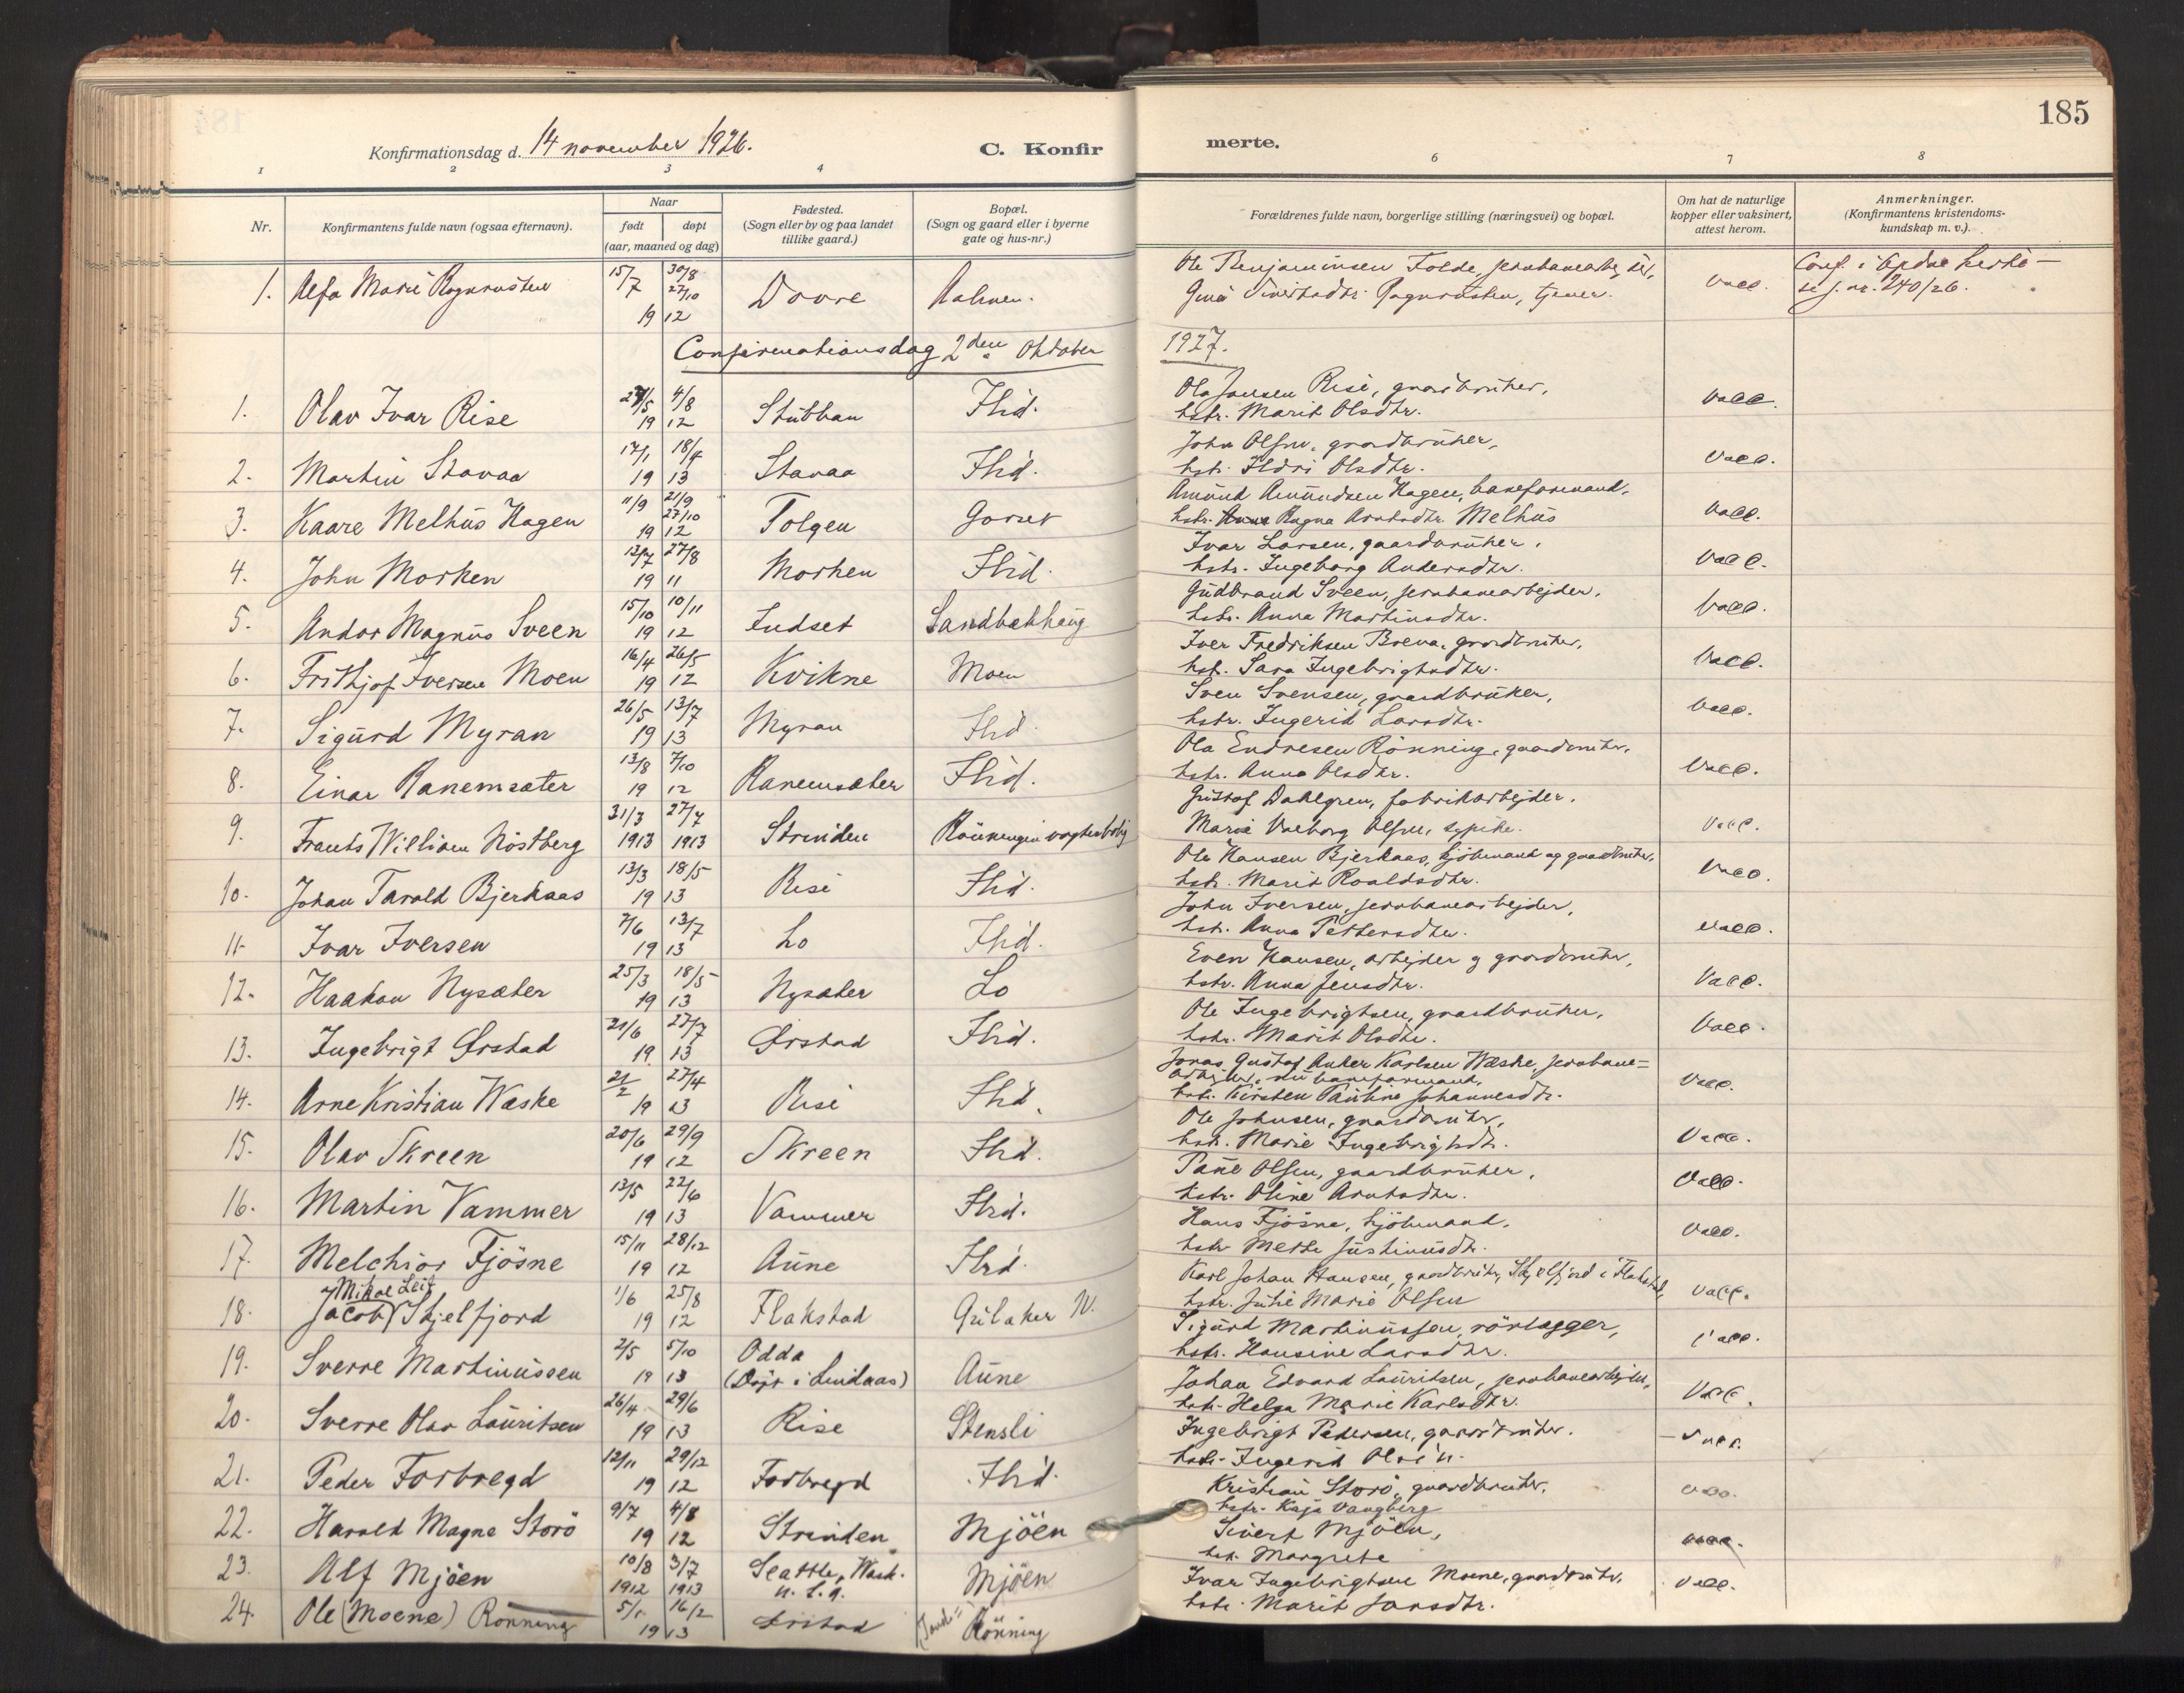 185
Konfirmationsdag d. 14 november 1926.
C. Konfir
merte.
1 2 3 4 6 7 8
Nr.
Konfirmantens fulde navn (ogsaa efternavn).
Naar
født døpt
(aar, maaned og dag)
Fødested.
(Sogn eller by og paa landet
tillike gaard.)
Bopæl.
(Sogn og gaard eller i byerne
gate og hus-nr.)
Forældrenes fulde navn, borgerlige stilling (næringsvei) og bopæl.
Om hat de naturlige
kopper eller vaksinert,
attest herom.
Anmerkninger.
(Konfirmantens kristendoms-
kundskap m. v.).
1. Marie 15/7 30/8 27/10 19 12 Dovre
Ole Benjaminsen Folde, jernbanearbejder, vacc.
tjener.
Conf. i Opdal kirke
se j. nr. 240/26.
Confirmationsdag 2den Oktober 1927.
1. Olav Ivar Rise 4/8 19 12 Stubban Ibid. Ola Jonsen Rise, gaardbruker, vacc.
hstr. Marit Olsdtr.
2. Martin Stavaa 17/1 18/4 19 13 Stavaa Ibid. John Olsen, gaardbruker, vacc.
hstr. Ildri Olsdtr.
3. Kaare Melhus Hagen 11/9 21/9 27/10 19 12 Tolgen Gorset Amund Amundsen Hagen, baneformand, vacc.
hstr. Ragna Arntsdtr. Melhus
4. John Morken 27/8 19 11 Morken Ibid. Ivar Larsen, gaardbruker, vacc.
hstr. Ingeborg Andersdtr.
5. Andor Magnus Sveen 15/10 10/11 19 12 Indset Sandbækhaug Gudbrand Sveen, jernbanearbejder, vacc.
hstr. Anna Martinsdtr.
6. Frithjof Iversen Moen 16/4 26/5 19 12 Kvikne Moen Iver Fredriksen gaardbruker, vacc.
hstr. Sara Ingebrigtsdtr.
7. Sigurd Myran 26/5 13/7 19 13 Myran Ibid. Sven Svensen, gaardbruker, vacc.
hstr. Ingerid Larsdtr.
8. Einar Ranemsæter 13/8 7/10 19 12 Ranemsæter Ibid. Ola Endresen Rönning, gaardbruker, vacc.
hstr. Anna Olsdtr.
9. Frants William Nöstberg 31/3 27/7 1913 1913 Strinden Rönningen vogterbolig Gustaf Dahlgren, fabrikarbejder, vacc.
Marie Valborg Olsen, sypike.
10. Johan Tarald Bjerkaas 13/3 18/5 19 13 Rise Ibid. Ole Hansen Bjerkaas, Sjömand og gaardbruker, vacc.
hstr. Marit Roaldsdtr.
11. Ivar Iversen 7/6 13/7 19 13 Lo Ibid. John Iversen, jernbanearbejder, vacc.
hstr. Anna Pettersdtr.
12. Haakon Nysæter 25/3 18/5 19 13 Nysæter Lo Even Hansen, arbejder og gaardbruker, vacc.
hstr. Anna Jensdtr.
13. Ingebrigt Ørstad 21/6 27/7 19 13 Ørstad Ibid. Ole Ingebrigtsen, gaardbruker, vacc.
hstr. Marit Olsdtr.
14. Arne Kristian Wæske 21/2 27/4 19 13 Rise Ibid. Jonas Gustaf Anker Karlsen Wæske, jernbane=
arbejder, nu baneformand, vacc.
hstr. Kirsten Pauline Johannesdtr.
15. Olav Skreen 20/6 29/9 19 12 Skreen Ibid. Ole Johnsen, gaardbruker, vacc.
hstr. Marie Ingebrigtsdtr.
16. Martin Vammer 13/5 22/6 19 13 Vammer Ibid. Paul Olsen, gaardbruker, vacc.
hstr. Oline Arntsdtr.
17. Melchior Fjösne 15/11 28/12 19 12 Aune Ibid. Hans Fjösne, Sjömand, vacc.
hstr. Mette Justinusdtr.
18. Jacob Mikal Leif Skjelfjord 1/6 25/8 19 12 Flakstad Gulaker N. Karl Johan Hansen, gaardbruker, Skjelfjord i Flakstad, vacc.
hstr. Julie Marie Olsen
19. Sverre Martinussen 2/5 5/10 19 13 Odda (Døpt i Lindaas) Aune Sigurd Martinussen, rörlægger, vacc.
hstr. Hansine Larsdtr.
20. Sverre Olav Lauritsen 26/4 29/6 19 13 Rise Stensli Johan Edvard Lauritsen, jernbanearbejder, vacc.
hstr. Helga Marie Karlsdtr.
21. Peder Forbregd 12/11 29/12 19 12 Forbregd Ibid. Ingebrigt Pedersen, gaardbruker. vacc.
hstr. Ingerid
22. Harald Magne Storö 9/7 4/8 19 12 Strinden Mjöen Kristian Storö, gaardbruker, vacc.
hstr. Kaja Vangberg
23. Alf Mjöen 10/8 3/7 1912 1913 Seattle, Wash. Mjöen Sivert Mjöen, vacc.
hstr. Margrete
24. Ole (Moene) Rönning 16/2 19 13 Ørstad Rönning Ivar Ingebrigtsen Moene, gaardbruker, vacc.
hstr. Marit